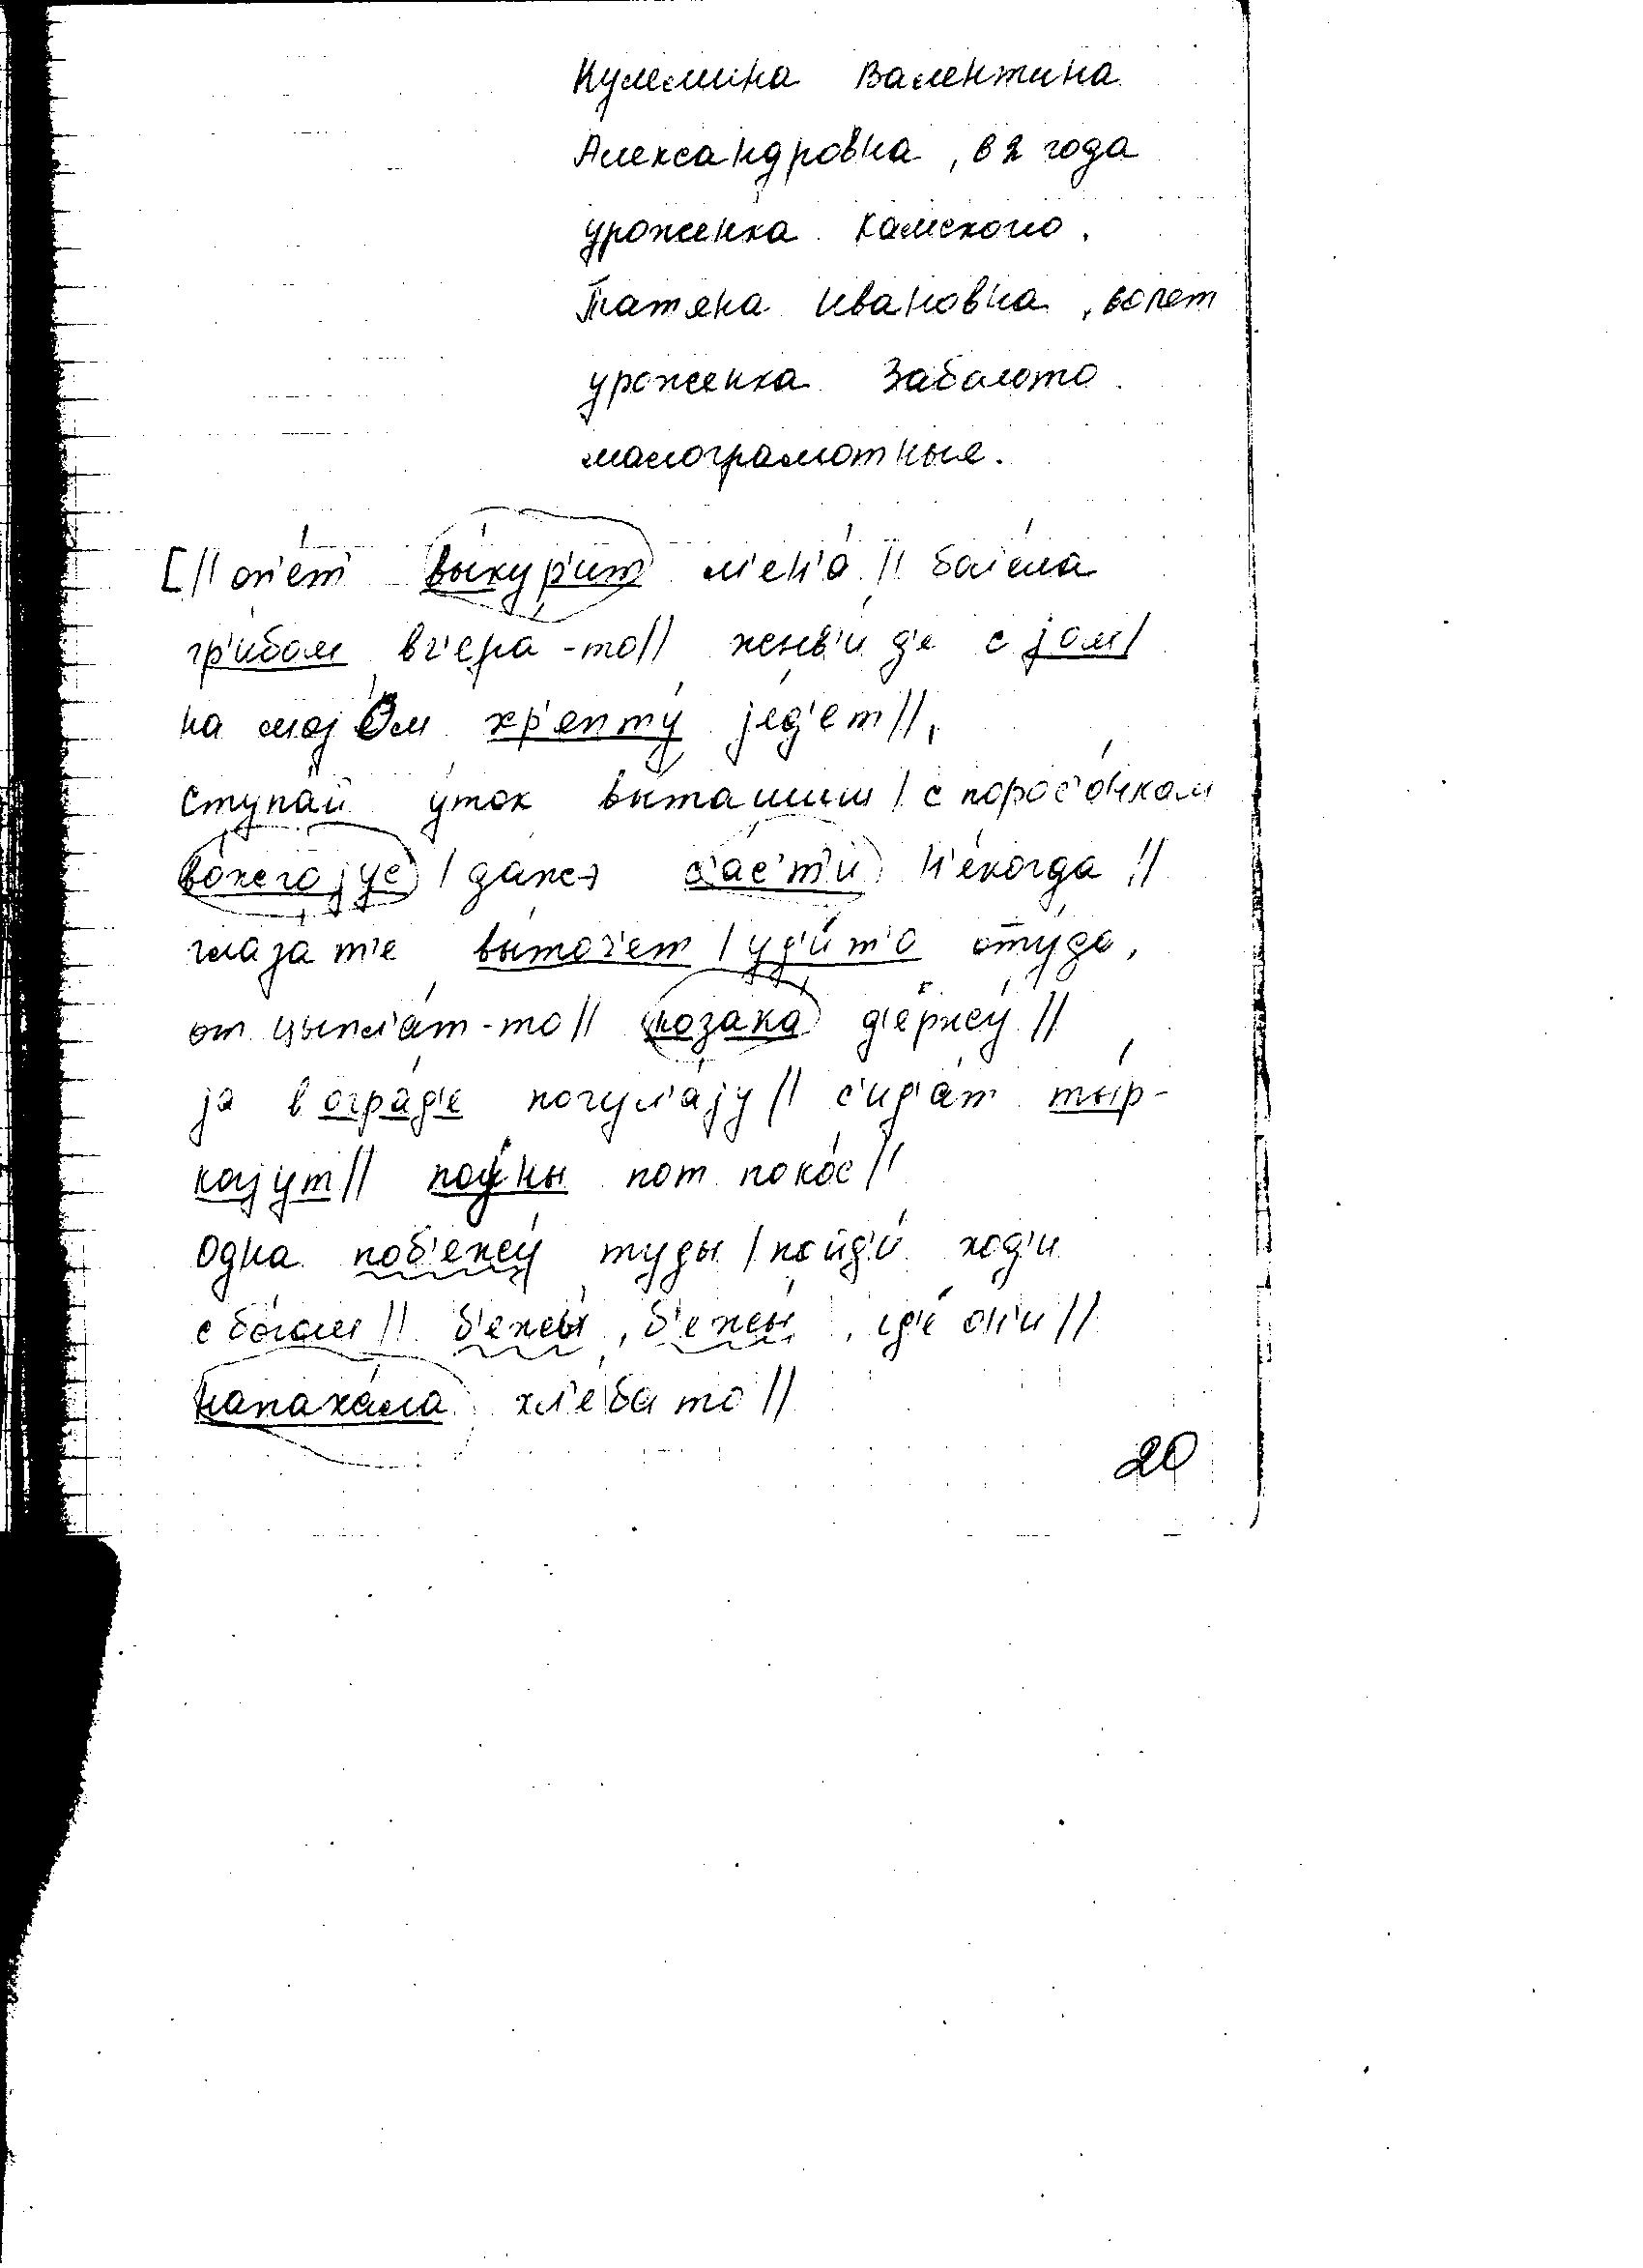 Кулемина Валентина
Александровна, 62 года
уроженка Камского.
Татяна Ивановна, 60 лет
уроженка Заболото
малограмотные.
[// оп'е́т' вы́кур'ит м'ен'а́ // бол'е́ла
гр'и́бом вч'ера́-то // жены́ д'е с jом/
на моjо́м хр'епту́ jе́д'ет //
ступа́й у́ток вы́ташиш / с порос'о́нком
во́жгаjус / да́же с'ас'т'и́ н'е́когда //
глаза́ т'е вы́точ'ет / уд'и́ т'о отту́да,
от цыпл'а́т-то // козака́ д'ержу́ //
jа в огра́д'е погул'а́jу // с'ид'а́т ты́р-
каjут // по́ўны пот поко́с //
одна поб'ежу́ туды / пойд'и́ ход'и
с бо́гом // б'ежы́, б'ежы́, гд'е́ он'и́ //
напаха́ла хл'е́ба то //
20